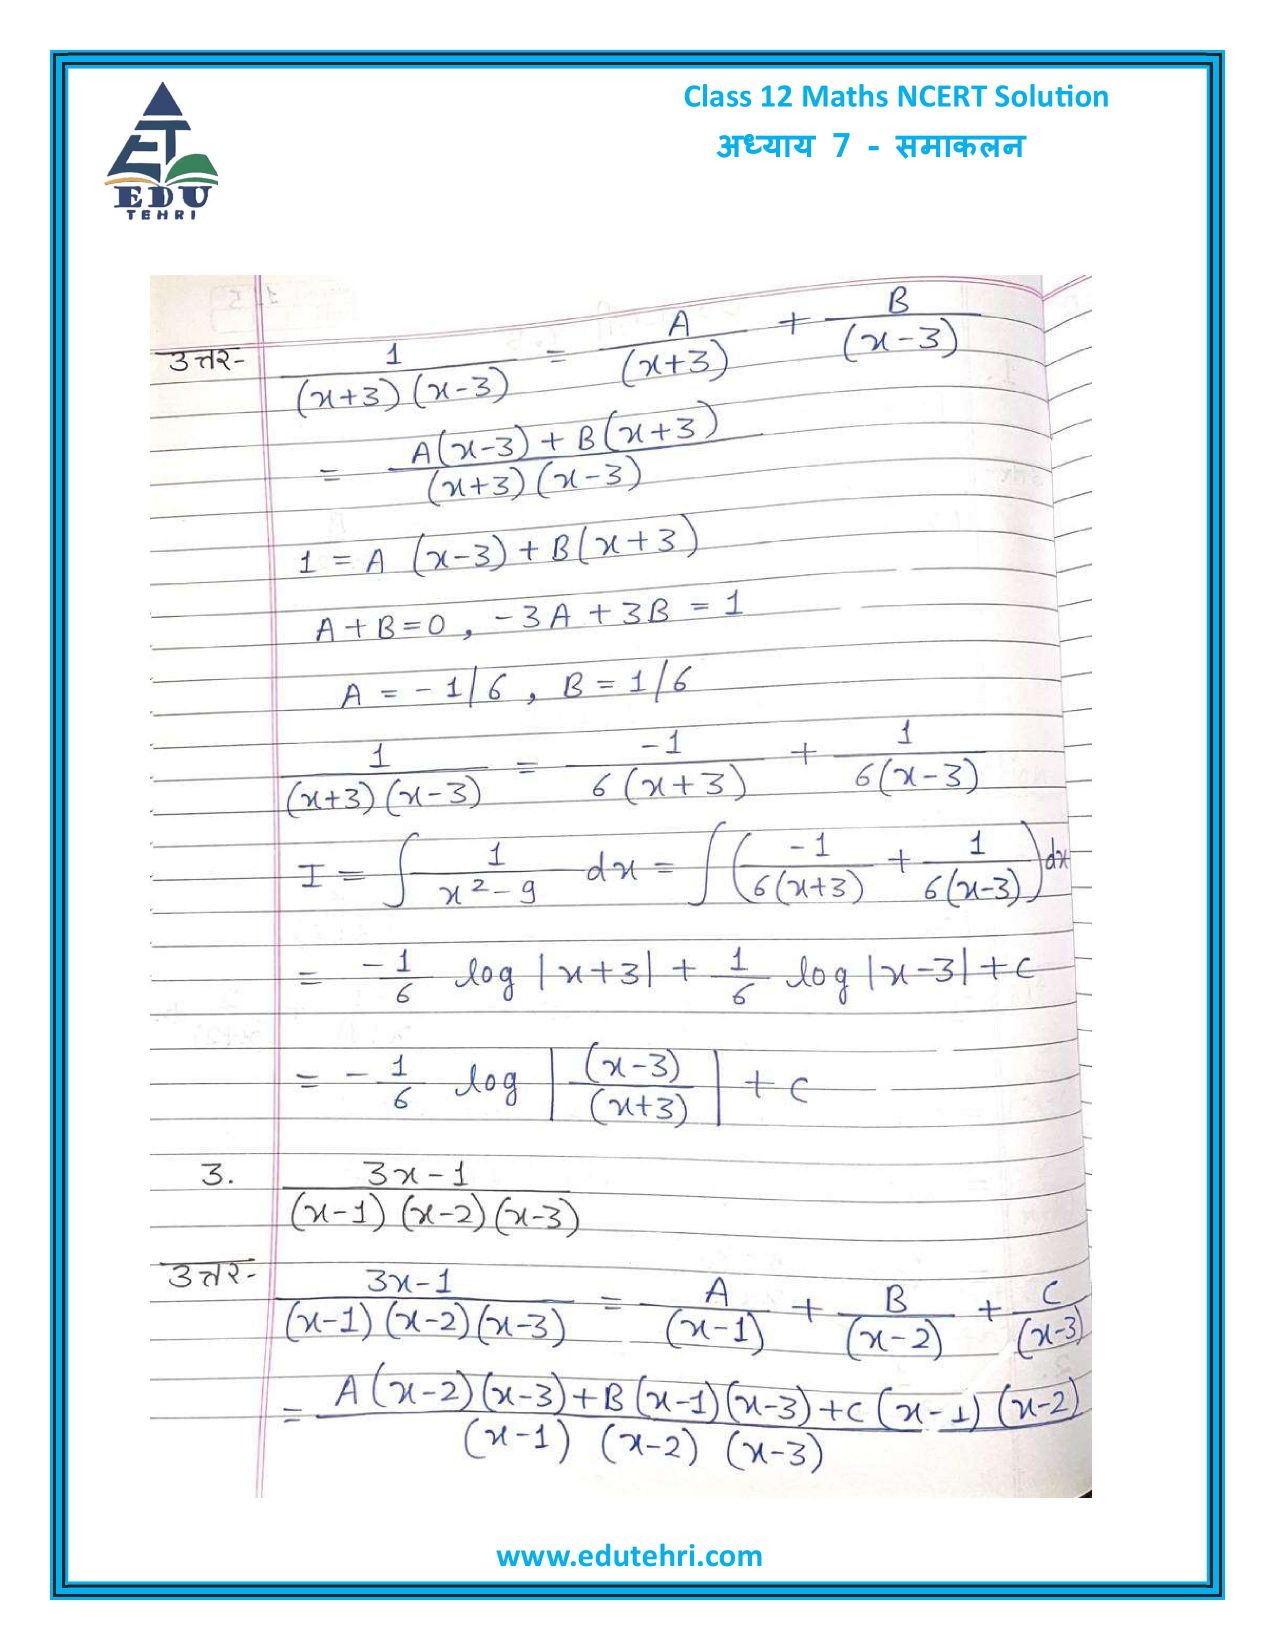 Class 12 Maths NCERT Solution
अध्याय 7 - समाकलन
EDU
TEHRI
उत्तर- 1/((x+3)(x-3)) = A/(x+3) + B/(x-3)
= (A(x-3) + B(x+3))/((x+3)(x-3))
1 = A (x-3) + B(x+3)
A+B=0, -3A+3B = 1
A = -1/6, B = 1/6
1/((x+3)(x-3)) = -1/(6(x+3)) + 1/(6(x-3))
I = ∫ 1/(x²-9) dx = ∫ (-1/(6(x+3)) + 1/(6(x-3))) dx
= -1/6 log |x+3| + 1/6 log |x-3| + C
= -1/6 log |(x-3)/(x+3)| + C
3. (3x-1)/((x-1)(x-2)(x-3))
उत्तर- (3x-1)/((x-1)(x-2)(x-3)) = A/(x-1) + B/(x-2) + C/(x-3)
= (A(x-2)(x-3)+B(x-1)(x-3)+C(x-1)(x-2))/((x-1)(x-2)(x-3))
www.edutehri.com